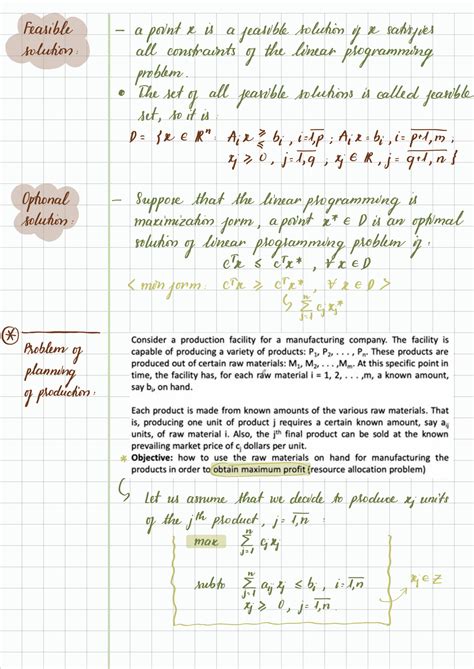 Feasible
solution:
– a point x is a feasible solution if x satisfies
all constraints of the linear programming
problem.
• The set of all feasible solutions is called feasible
set, so it is:
D = {x ∈ ℝⁿ: Aᵢx ⪌ bᵢ, i=1,p; Aᵢx = bᵢ, i=p+1,m,
xⱼ ≥ 0, j=1,q; xⱼ ∈ R, j=q+1,n}
Optional
solution:
– Suppose that the linear programming is
maximization form, a point x* ∈ D is an optimal
solution of linear programming problem if:
cᵀx ≤ cᵀx*, ∀x ∈ D
<min form: cᵀx ≥ cᵀx*, ∀x ∈ D>
↳ ∑ⁿⱼ₌₁ cⱼxⱼ*
* Problem of
planning
of production:
Consider a production facility for a manufacturing company. The facility is
capable of producing a variety of products: P₁, P₂, . . . , Pₙ. These products are
produced out of certain raw materials: M₁, M₂, . . . , Mₘ. At this specific point in
time, the facility has, for each raw material i = 1, 2, . . . ,m, a known amount,
say bᵢ, on hand.
Each product is made from known amounts of the various raw materials. That
is, producing one unit of product j requires a certain known amount, say aᵢⱼ
units, of raw material i. Also, the jᵗʰ final product can be sold at the known
prevailing market price of cⱼ dollars per unit.
* Objective: how to use the raw materials on hand for manufacturing the
products in order to obtain maximum profit (resource allocation problem)
↳ Let us assume that we decide to produce xⱼ units
of the jᵗʰ product, j = 1,n:
max ∑ⁿⱼ₌₁ cⱼxⱼ
subto ∑ⁿⱼ₌₁ aᵢⱼxⱼ ≤ bᵢ, i=1,n
xⱼ ≥ 0, j=1,n.
xⱼ ∈ Z